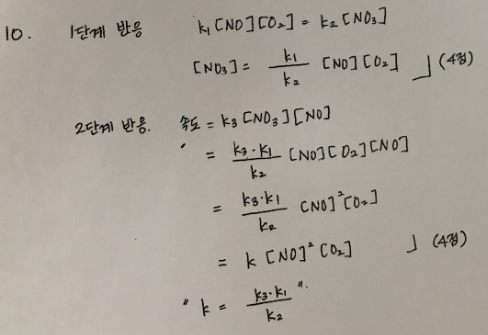 10. 1단계 반응 k₁[NO][O₂] = k₂[NO₃]
[NO₃] = k₁/k₂ [NO][O₂] 」(4점)
2단계 반응. 속도 = k₃[NO₃][NO]
= k₃·k₁/k₂ [NO][O₂][NO]
= k₃·k₁/k₂ [NO]²[O₂]
= k [NO]²[O₂] 」(4점)
" k = k₃·k₁/k₂ "